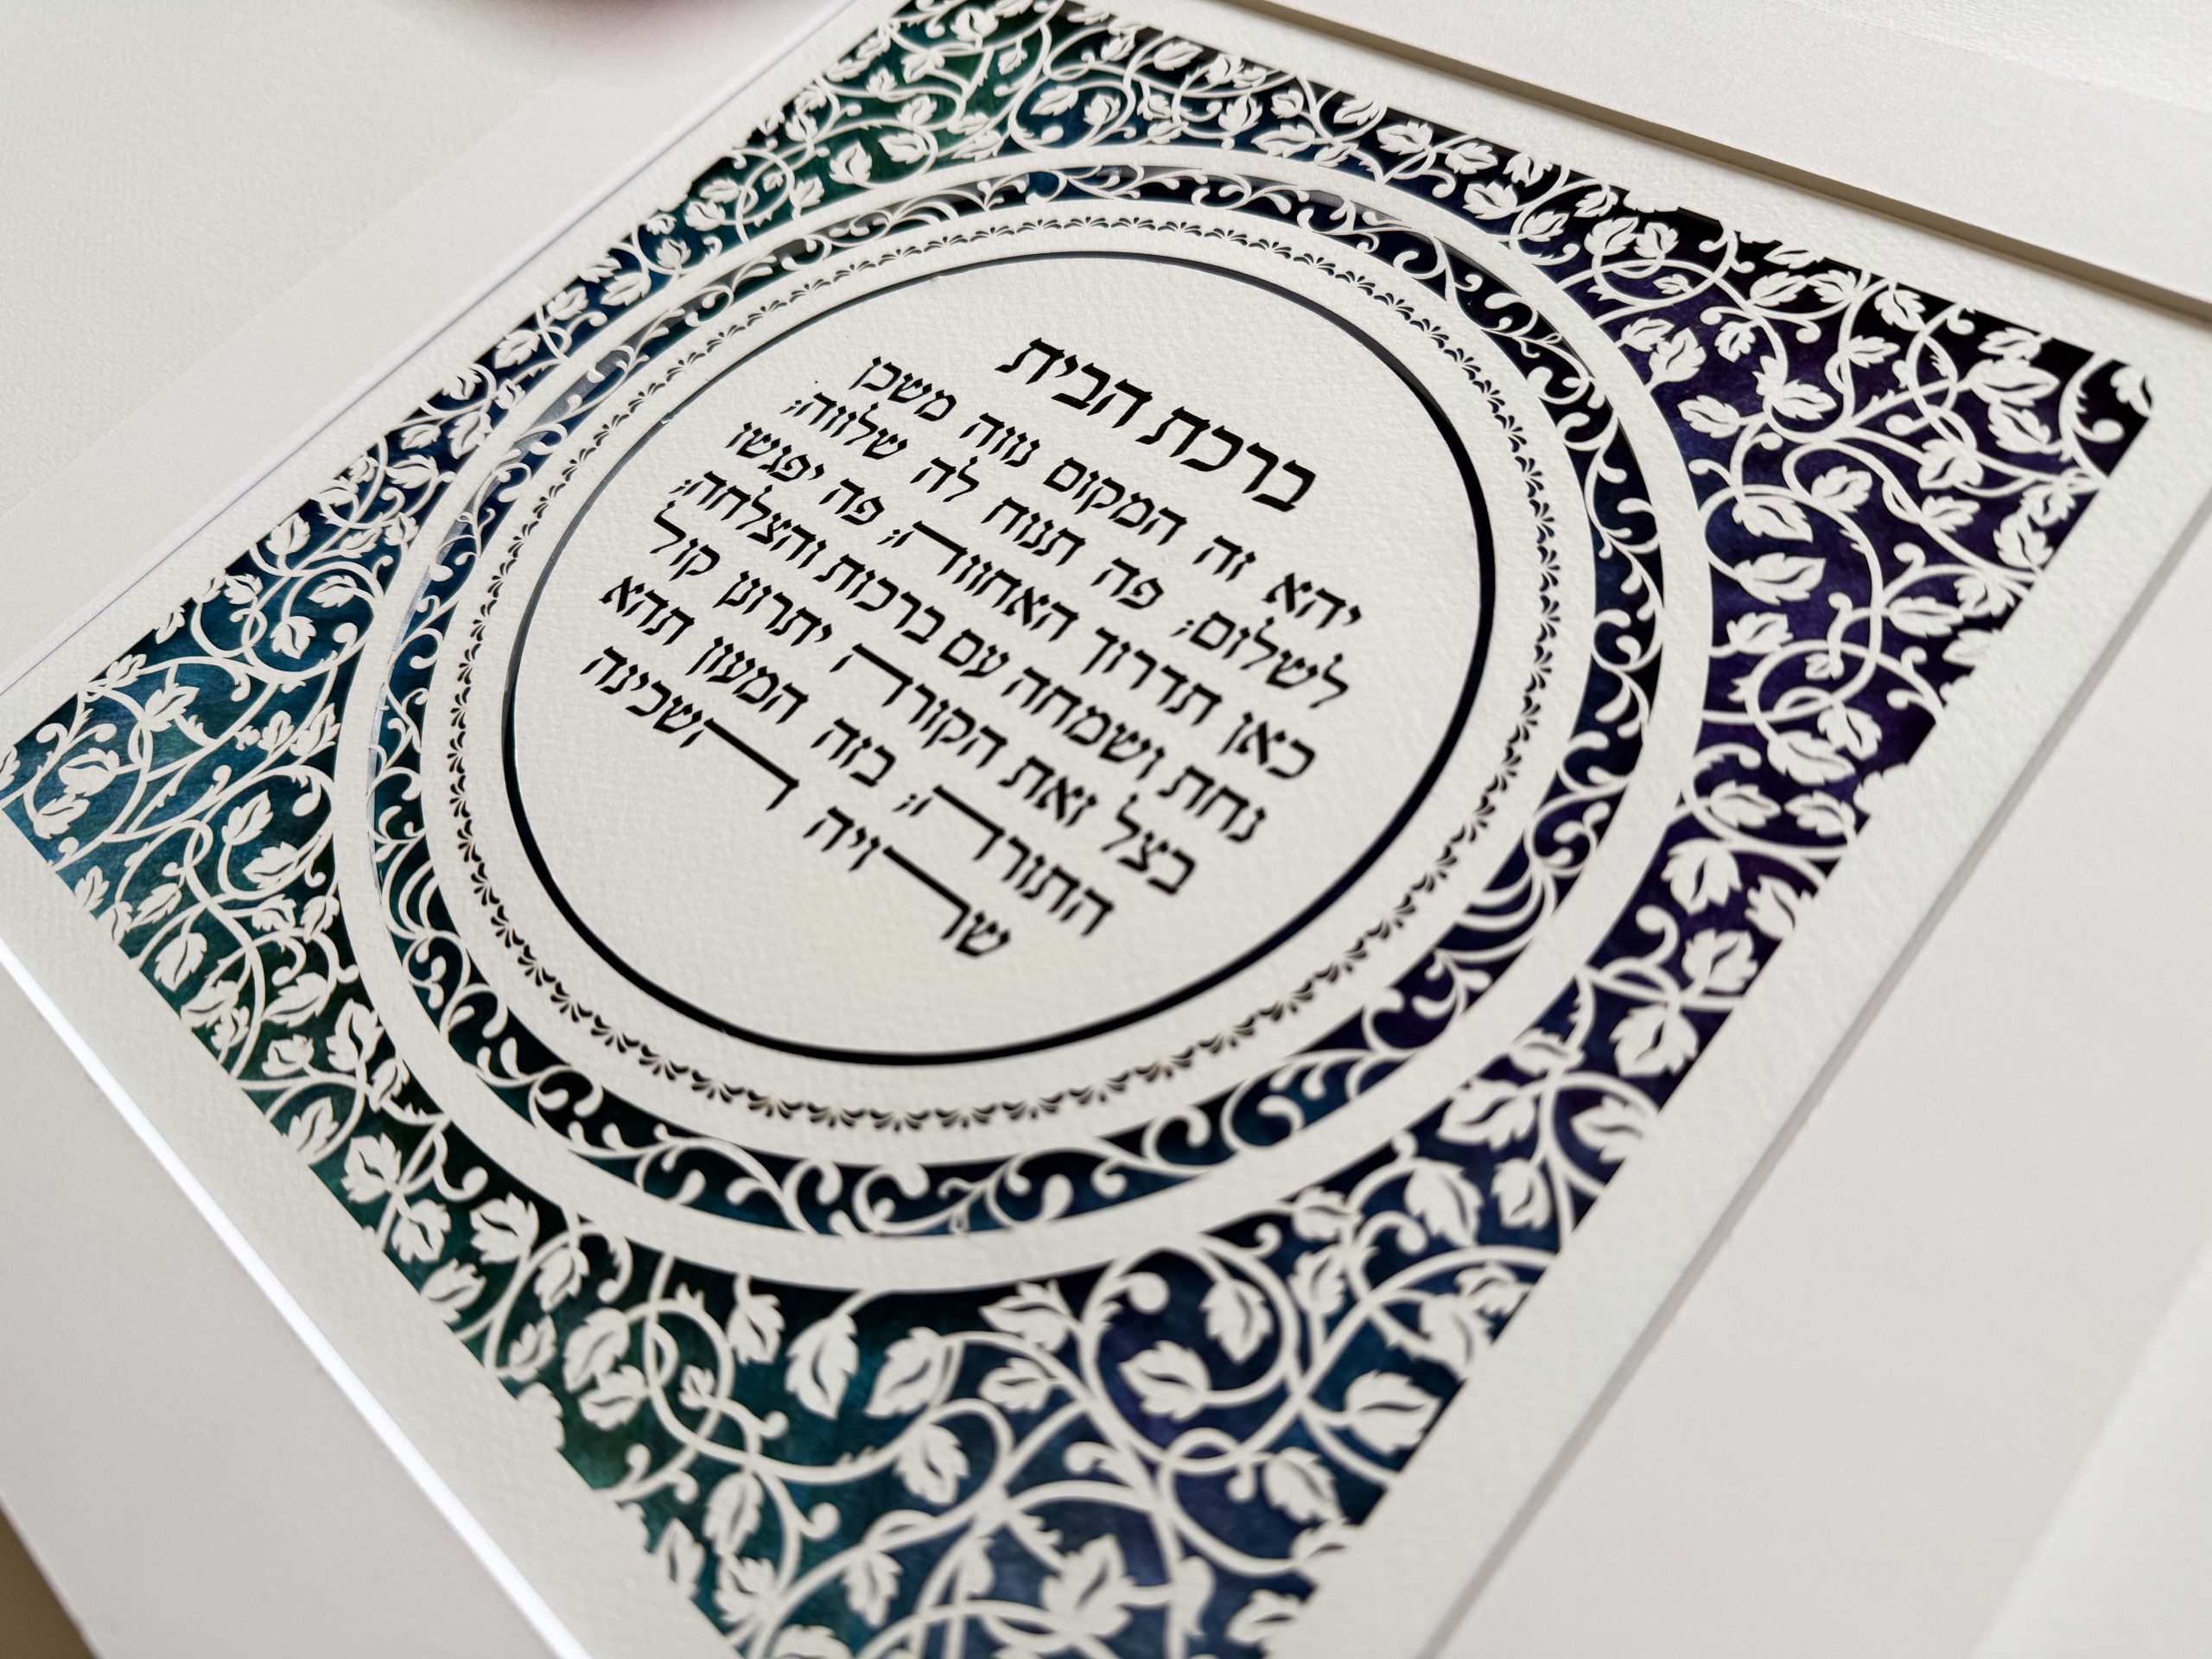 ברכת הבית
יהא זה המקום נווה משכן
לשלום; פה תנוח לה שלווה;
כאן תדרוך האחווה; פה יפגשו
נחת ושמחה עם ברכות והצלחה;
בצל זאת הקורה יתרונן קול
התורה; בזה המעון תהא
שרויה השכינה